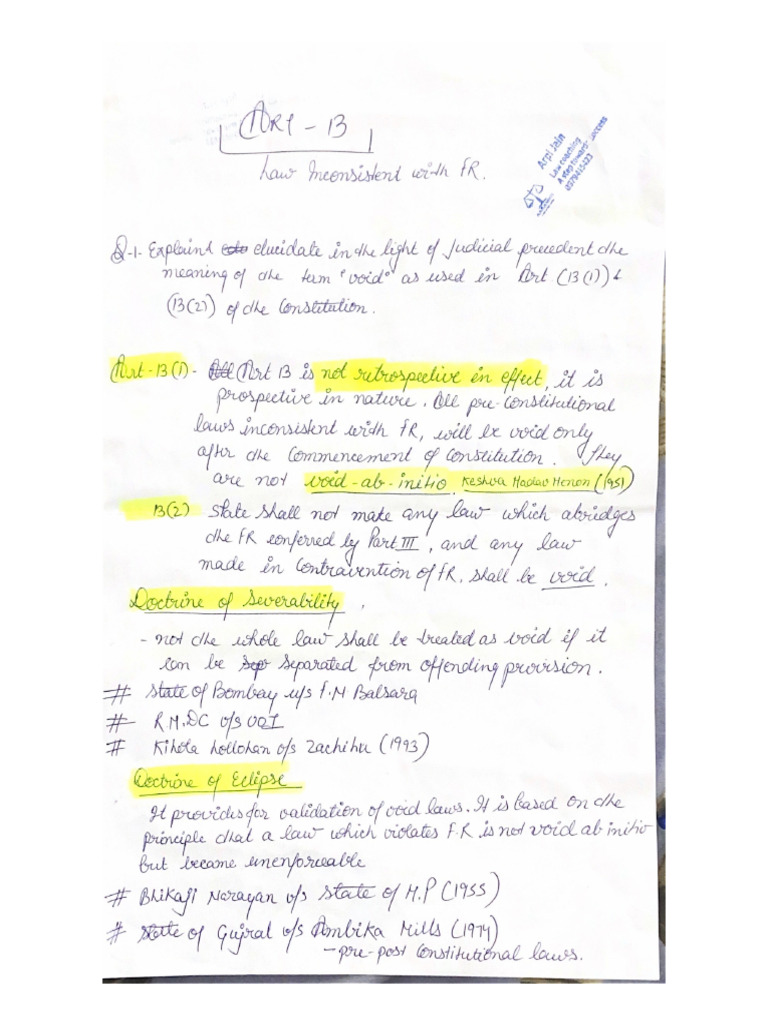 Art - 13
Law Inconsistent with FR.
Arpi Jain
Law coaching
A step towards success
Q-1- Explain & elucidate in the light of Judicial precedent the
meaning of the term "void" as used in Art (13(1)) &
(13(2)) of the Constitution.
Art-13(1) - Art 13 is not retrospective in effect, it is
prospective in nature. All pre-Constitutional
laws inconsistent with FR, will be void only
after the Commencement of Constitution. They
are not void-ab-initio. Keshva Madav Menon (1951)
13(2) State shall not make any law which abridges
the FR conferred by Part III, and any law
made in Contravention of FR, shall be void.
Doctrine of Severability,
- not the whole law shall be treated as void if it
can be separated from offending provision.
# State of Bombay v/s F.M Balsara
# R.M.DC v/s UOI
# Kihota Hollohan v/s Zachihu (1993)
Doctrine of Eclipse
It provides for validation of void laws. It is based on the
principle that a law which violates F.R is not void ab initio
but became unenforceable
# Bhikaji Narayan v/s State of M.P (1955)
# State of Gujrat v/s Ambika Mills (1974)
- pre-post Constitutional laws.